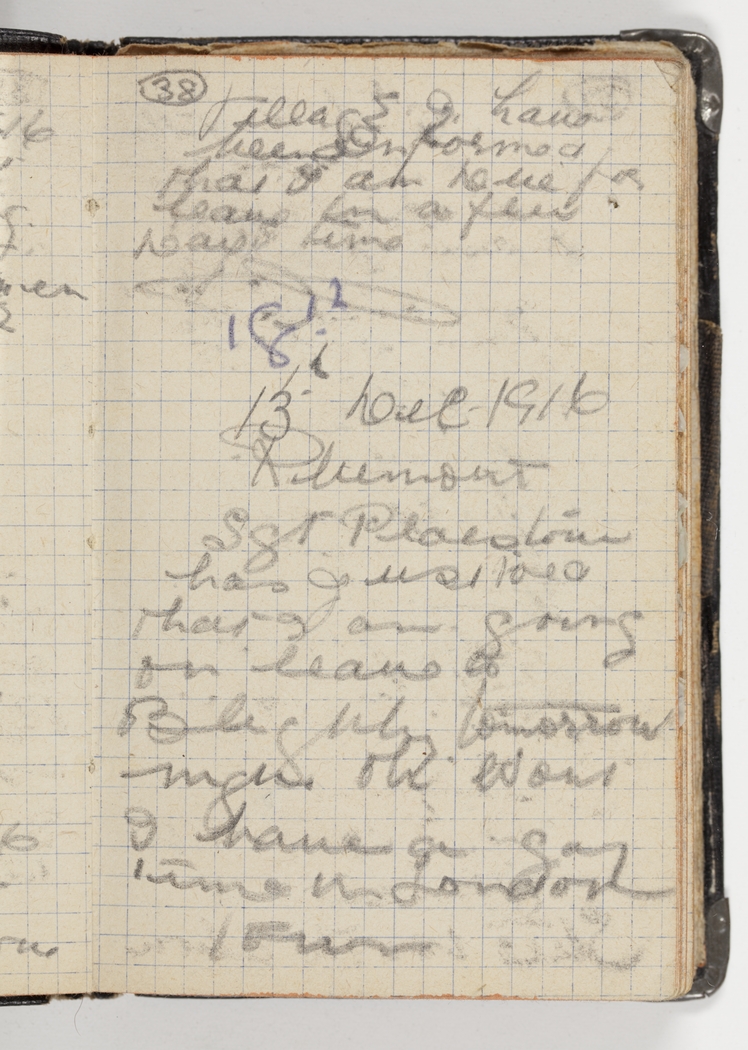 38
village I have
been informed
that I am due for
leave in a few
days time
18 12
13 Dec 1916
Ribemont
Sgt
has just told
that I am going
on leave to
Blighty tomorrow
night Oh Wont
I have a gay
time in London
town